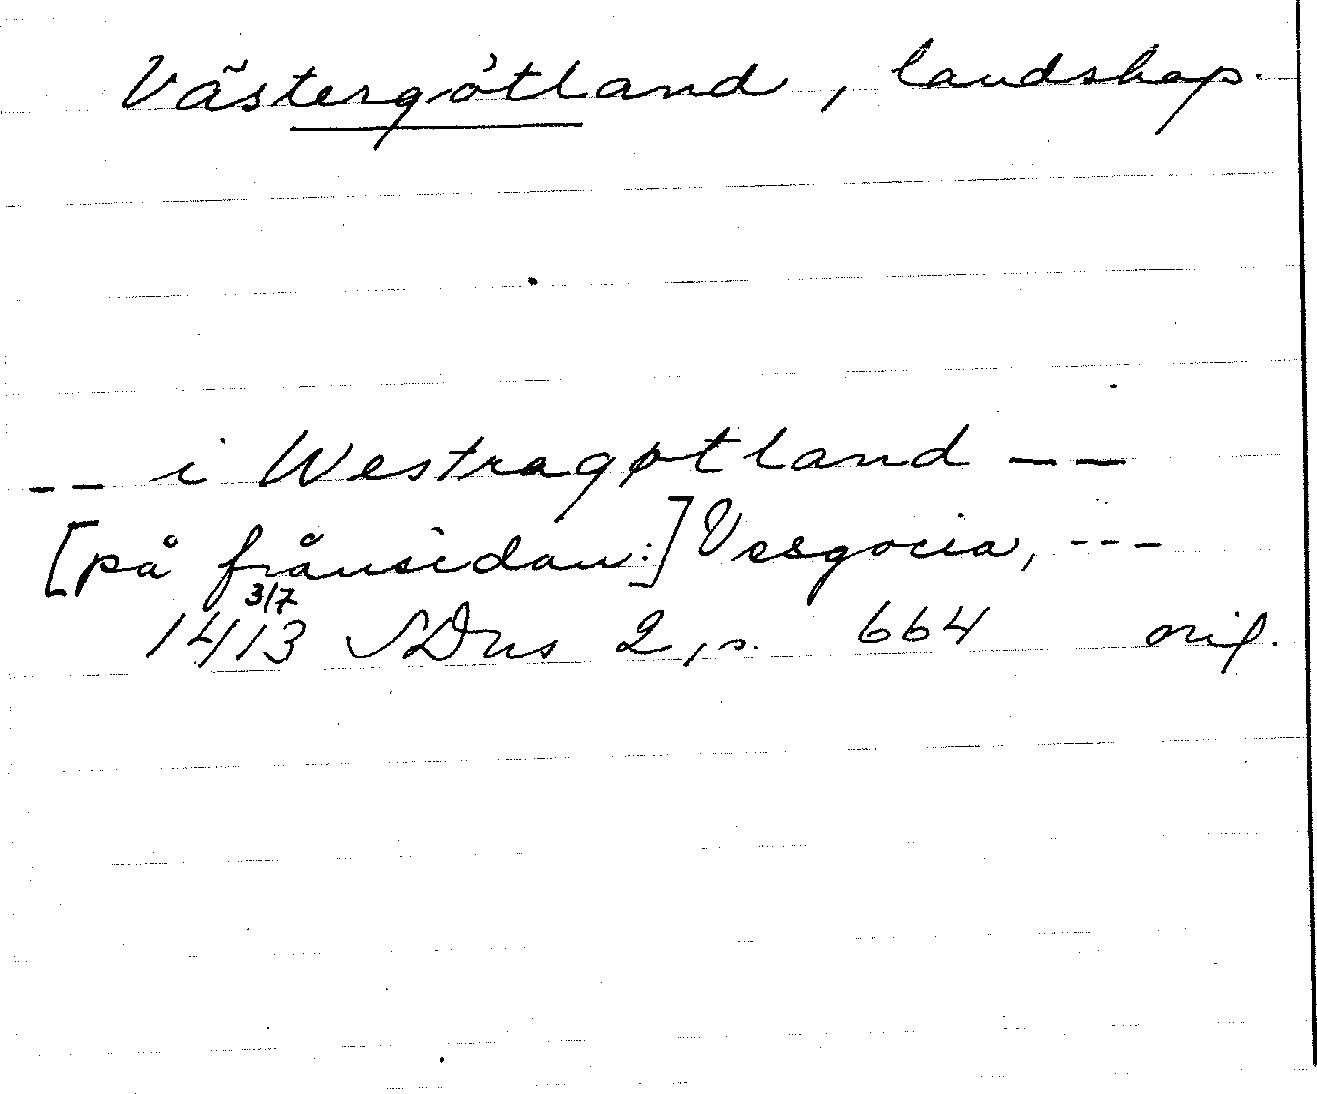 Västergötland, landskap.
-- i Westragøtland --
[på frånsidan:] Vesgocia, ---
3/7
1413 SDns 2, s. 664 orig.